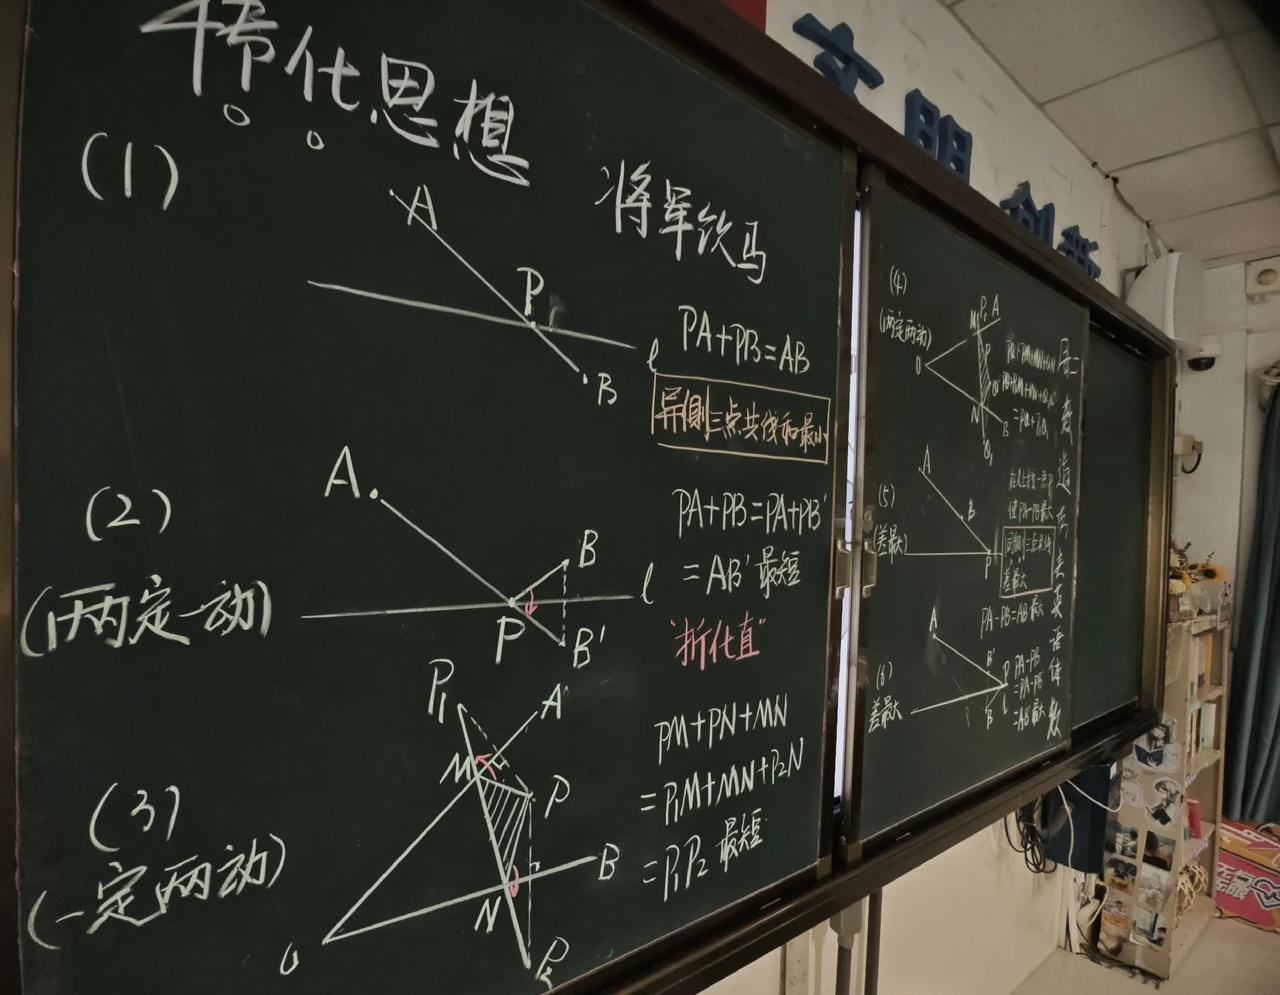 转化思想
(1)
将军饮马
A
P
l
B
PA+PB=AB
异侧三点共线和最小
(2)
(两定一动)
A
B
l
P
B'
PA+PB=PA+PB'
=AB'最短
"折化直"
(3)
(一定两动)
P₁
A
M
P
B
N
O
P₂
PM+PN+MN
=P₁M+MN+P₂N
=P₁P₂最短
(4)
(两定两动)
M
P₁
A
O
P
N
B
Q₁
(5)
(差最大)
A
B
P
在l上找一点P
使PA-PB最大
同侧三点共线
差最大
PA-PB=AB最大
(6)
差最大
A
B'
P
B
PA-PB
=PA-PB'
=AB'最大
周二
数
语
英
语
体
数
文明
创新